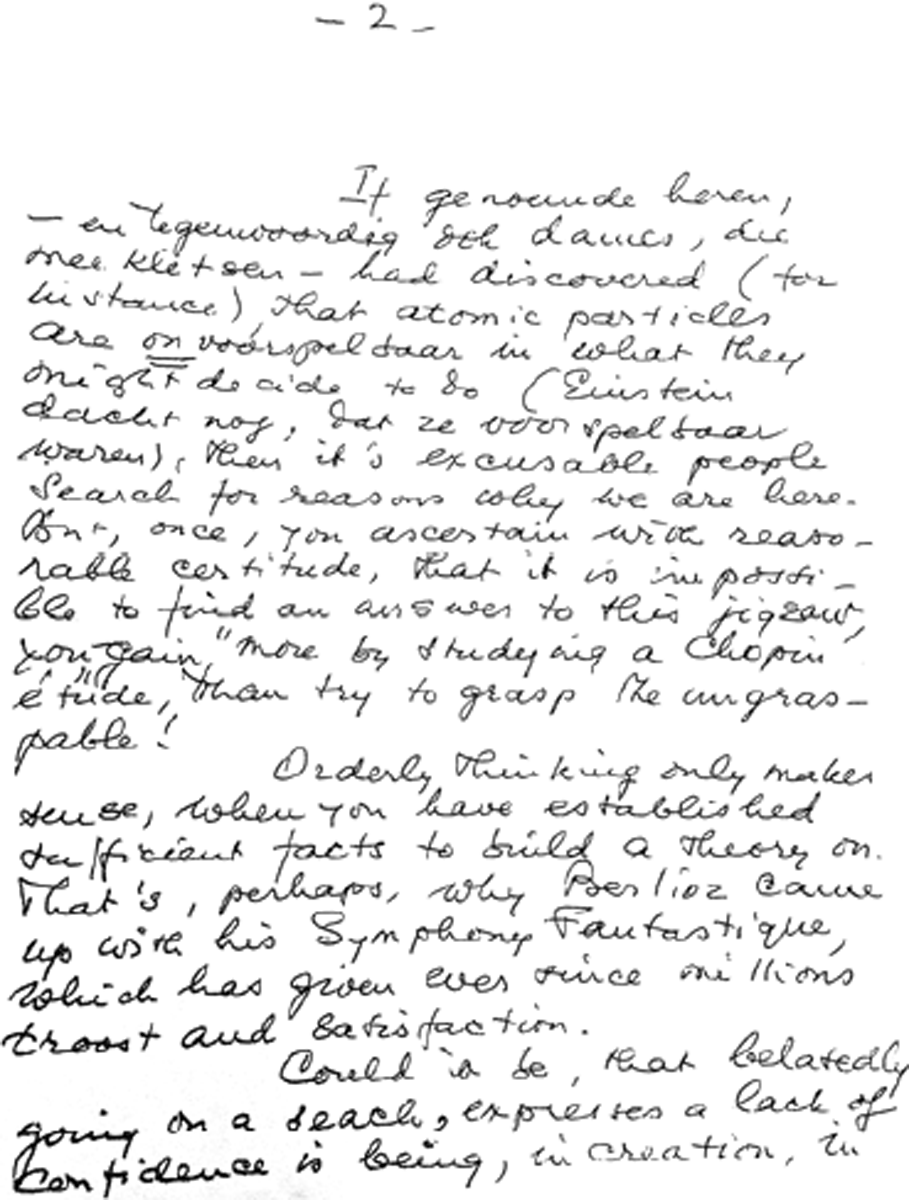 - 2 -
If genoemde heren,
- en tegenwoordig ook dames, die
mee kletsen - had discovered (for
instance), that atomic particles
are onvoorspelbaar in what they
might decide to do (Einstein
dacht nog, dat ze voorspelbaar
waren), then it's excusable people
search for reasons why we are here.
But, once, you ascertain with reaso-
nable certitude, that it is impossi-
ble to find an answer to this jigsaw,
you "gain" more by studying a Chopin
étude, than try to grasp the ungras-
pable!
Orderly thinking only makes
sense, when you have established
sufficient facts to build a theory on.
That's, perhaps, why Berlioz came
up with his Symphony Fantastique,
which has given ever since millions
troost and satisfaction.
Could it be, that belatedly
going on a seach, expresses a lack of
confidence is being, in creation, in